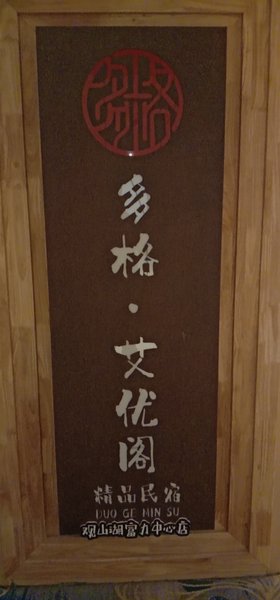 多格·艾优阁
精品民宿
DUO GE MIN SU
观山湖富力中心店